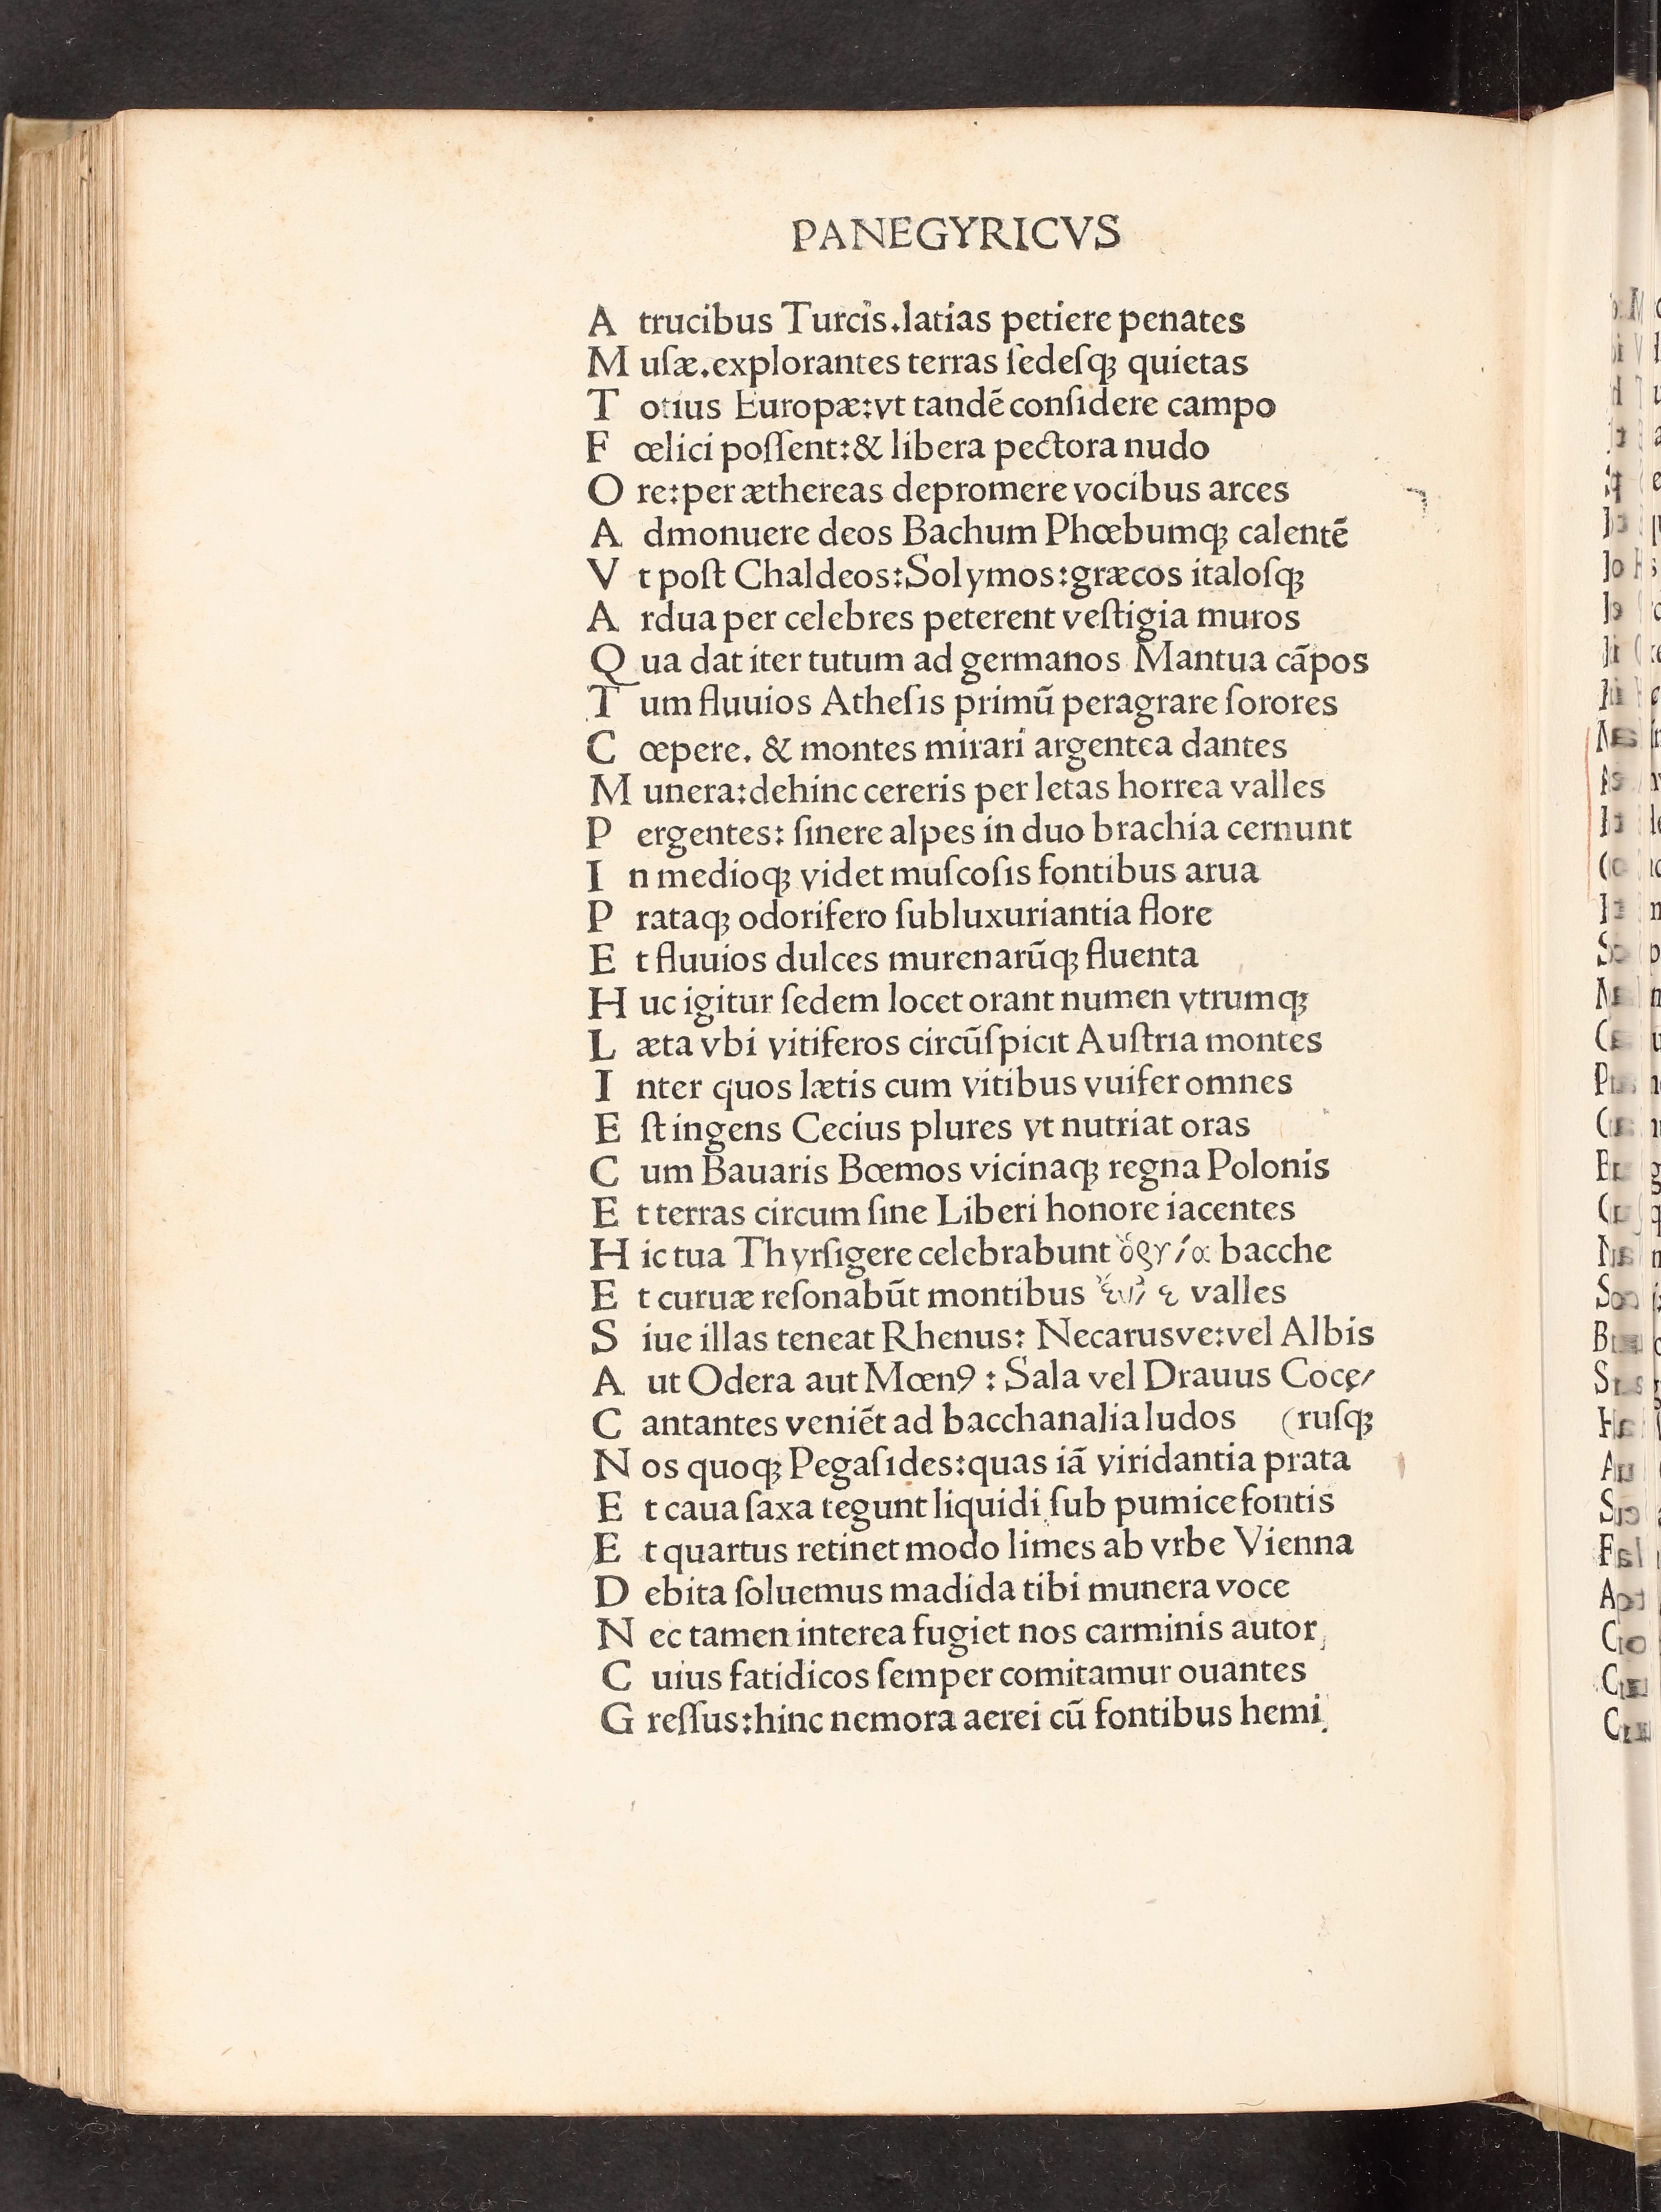 PANEGYRICVS
A trucibus Turcis.latias petiere penates
M uſæ.explorantes terras ſedeſqꝫ quietas
T otius Europæ:vt tandē conſidere campo
F œlici poſſent:& libera pectora nudo
O re:per æthereas depromere vocibus arces
A dmonuere deos Bachum Phœbumqꝫ calentē
V t poſt Chaldeos:Solymos:græcos italoſqꝫ
A rdua per celebres peterent veſtigia muros
Q ua dat iter tutum ad germanos Mantua cāpos
T um fluuios Atheſis primū peragrare ſorores
C œpere. & montes mirari argentea dantes
M unera:dehinc cereris per letas horrea valles
P ergentes: ſinere alpes in duo brachia cernunt
I n medioqꝫ videt muſcoſis fontibus arua
P rataqꝫ odorifero ſubluxuriantia flore
E t fluuios dulces murenarūqꝫ fluenta
H uc igitur ſedem locet orant numen vtrumqꝫ
L æta vbi vitiferos circūſpicit Auſtria montes
I nter quos lætis cum vitibus vuifer omnes
E ſt ingens Cecius plures vt nutriat oras
C um Bauaris Bœmos vicinaqꝫ regna Polonis
E t terras circum ſine Liberi honore iacentes
H ic tua Thyrſigere celebrabunt ὄργια bacche
E t curuæ reſonabūt montibus valles
S iue illas teneat Rhenus: Necarusve:vel Albis
A ut Odera aut Mœnꝯ : Sala vel Drauus Cocę/
C antantes veniēt ad bacchanalia ludos (ruſqꝫ
N os quoqꝫ Pegaſides:quas iā viridantia prata
E t caua ſaxa tegunt liquidi ſub pumice fontis
E t quartus retinet modo limes ab vrbe Vienna
D ebita ſoluemus madida tibi munera voce
N ec tamen interea fugiet nos carminis autor
C uius fatidicos ſemper comitamur ouantes
G reſſus:hinc nemora aerei cū fontibus hemi